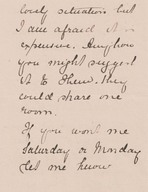 lovely situation but
I am afraid it is
expensive. Anyhow
you might suggest
it to them. They
could share one
room.
If you want me
Saturday or Monday
let me know